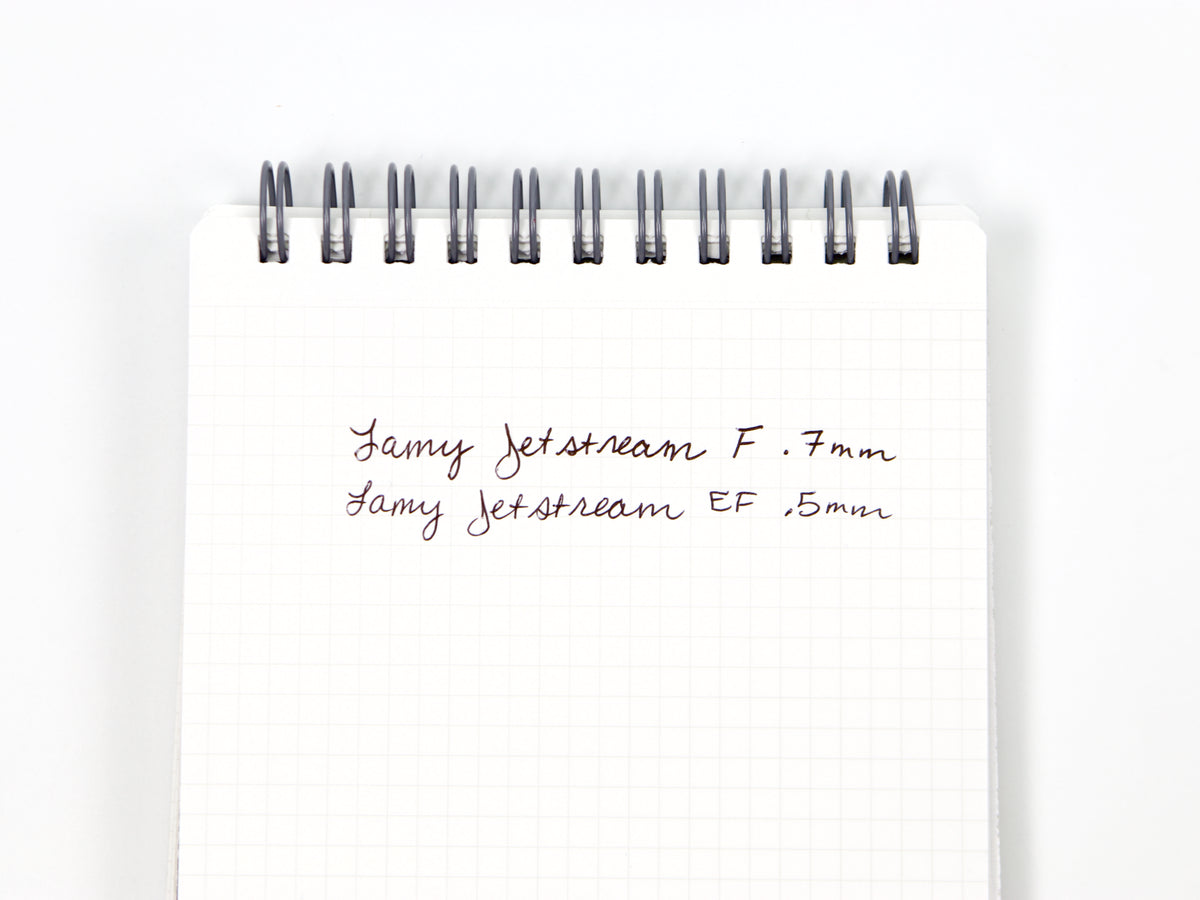 Lamy Jetstream F .7mm
Lamy Jetstream EF .5mm